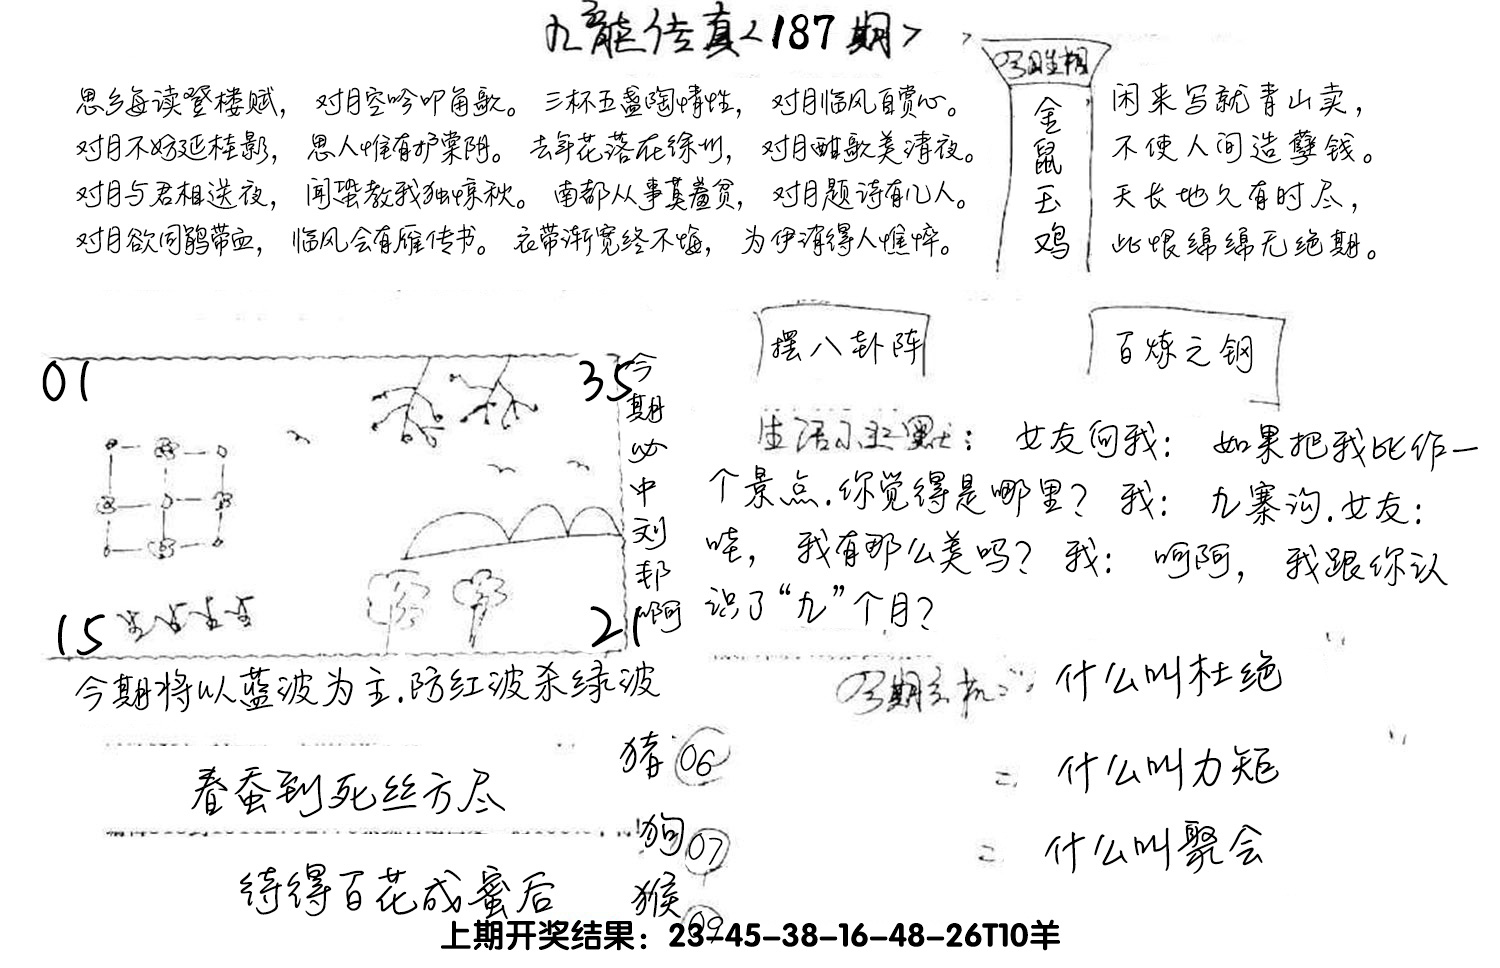 九龙传真<187期>
思乡每读登楼赋，对月空吟叩角歌。三杯五盏陶情性，对月临风自赏心。
对月不妨延桂影，思人惟有护棠阴。去年花落在徐州，对月酣歌美清夜。
对月与君相送夜，闻蛩教我独惊秋。南都从事莫羞贫，对月题诗有几人。
对月欲同鹃带血，临风会有雁传书。衣带渐宽终不悔，为伊消得人憔悴。
今期生相
金
鼠
玉
鸡
闲来写就青山卖，
不使人间造孽钱。
天长地久有时尽，
此恨绵绵无绝期。
摆八卦阵
百炼之钢
01
35
15
21
今期必中刘邦啊
生活小幽默：女友问我：如果把我比作一
个景点.你觉得是哪里？我：九寨沟.女友：
哇，我有那么美吗？我：呵呵，我跟你认
识了“九”个月？
今期将以蓝波为主.防红波杀绿波
今期玄机：什么叫杜绝
什么叫力矩
什么叫聚会
春蚕到死丝方尽
待得百花成蜜后
猪 06
狗 07
猴 09
上期开奖结果：23-45-38-16-48-26T10羊